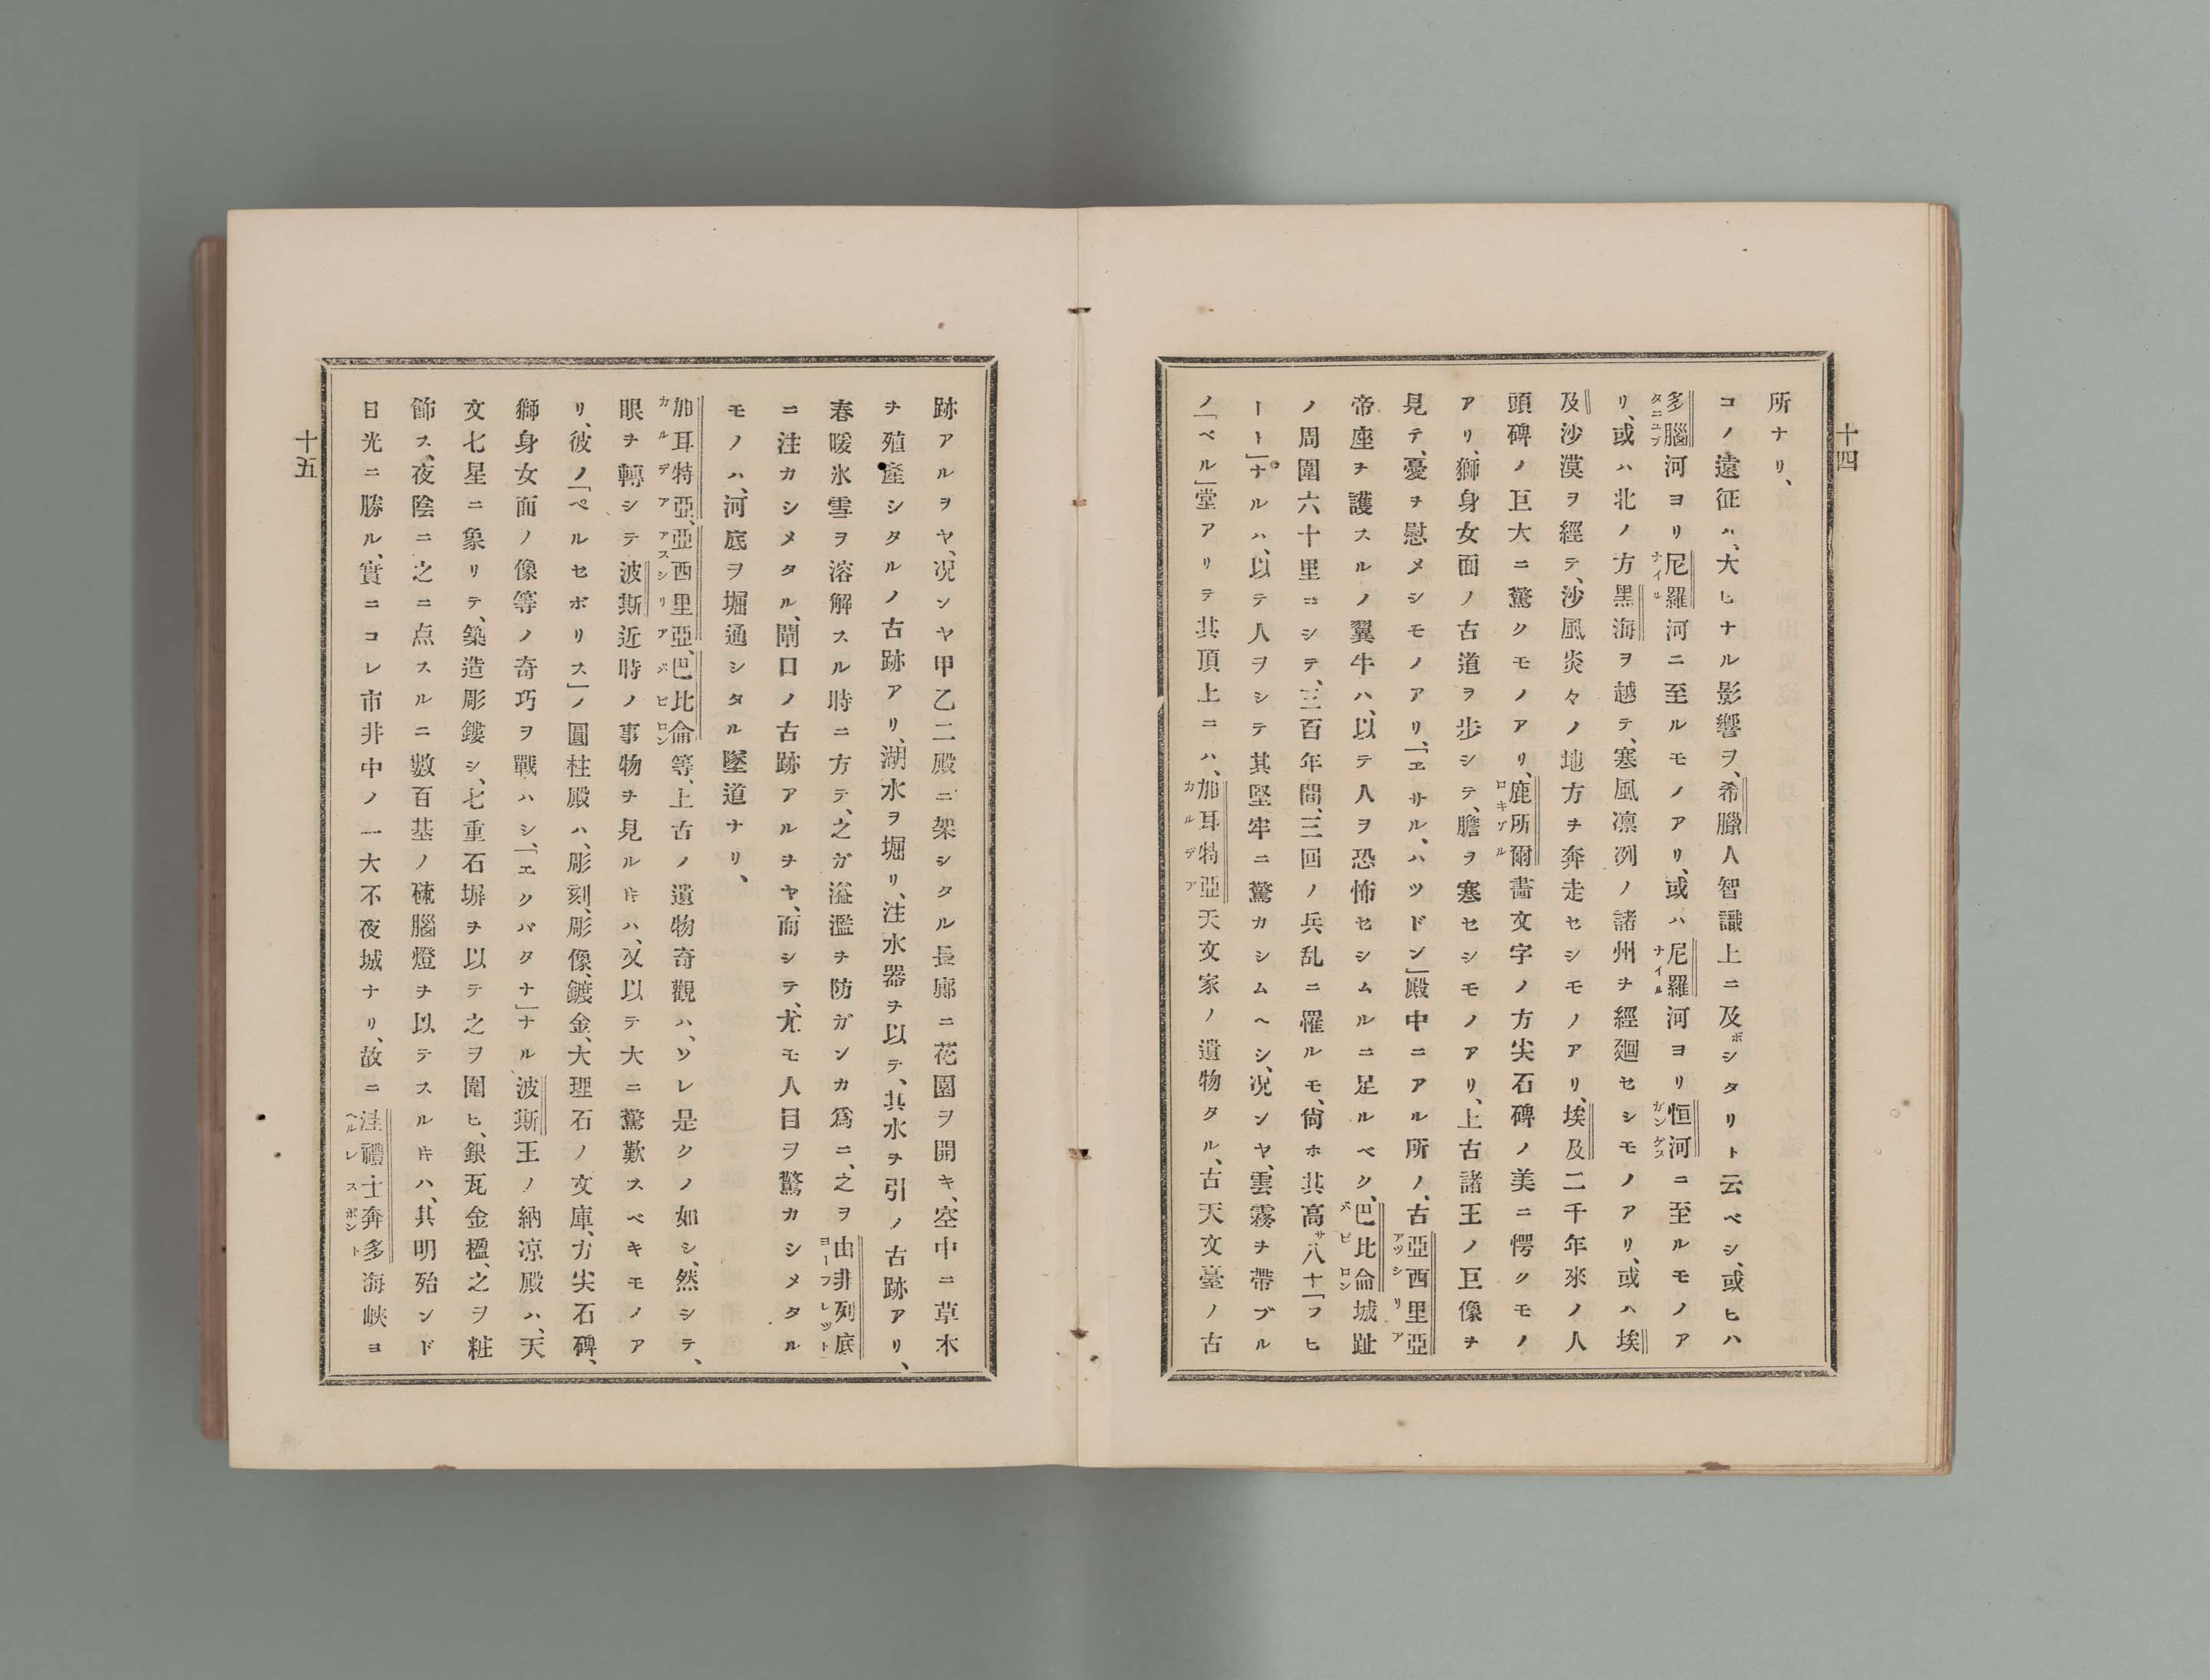 十四
所ナリ、
コノ遠征ハ、大ヒナル影響ヲ、希臘人智識上ニ及ボシタリト云ベシ、或ヒハ
多腦河ヨリ尼羅河ニ至ルモノアリ、或ハ尼羅河ヨリ恒河ニ至ルモノア
リ、或ハ北ノ方黑海ヲ越テ、寒風凛冽ノ諸州ヲ經廻セシモノアリ、或ハ埃
及沙漠ヲ經テ、沙風炎々ノ地方ヲ奔走セシモノアリ、埃及二千年來ノ人
頭碑ノ巨大ニ驚クモノアリ、鹿所爾畵文字ノ方尖石碑ノ美ニ愕クモノ
アリ、獅身女面ノ古道ヲ歩シテ、膽ヲ寒セシモノアリ、上古諸王ノ巨像ヲ
見テ、憂ヲ慰メシモノアリ、「エサル、ハツドン」殿中ニアル所ノ、古亞西里亞
帝座ヲ護スルノ翼牛ハ、以テ人ヲ恐怖セシムルニ足ルベク、巴比侖城趾
ノ周圍六十里ニシテ、三百年間、三回ノ兵乱ニ罹ルモ、尙ホ其高サ八十「フヒ
ート」ナルハ、以テ人ヲシテ其堅牢ニ驚カシムヘシ、况ンヤ、雲霧ヲ帶ブル
ノ「ベル」堂アリテ其頂上ニハ、加耳特亞天文家ノ遺物タル、古天文臺ノ古
跡アルヲヤ、况ンヤ甲乙二殿ニ架シタル長廊ニ花園ヲ開キ、空中ニ草木
ヲ殖產シタルノ古跡アリ、湖水ヲ堀リ、注水器ヲ以テ、其水ヲ引ノ古跡アリ、
春暖氷雪ヲ溶解スル時ニ方テ、之ガ溢濫ヲ防ガンカ爲ニ、之ヲ由非列底
ニ注カシメタル、閘口ノ古跡アルヲヤ、而シテ、尤モ人目ヲ驚カシメタル
モノハ、河底ヲ堀通シタル墜道ナリ、
加耳特亞、亞西里亞、巴比侖等、上古ノ遺物奇觀ハ、ソレ是クノ如シ、然シテ、
眼ヲ轉シテ波斯近時ノ事物ヲ見ルㇳキハ、又以テ大ニ驚歎スベキモノア
リ、彼ノ「ペルセポリス」ノ圓柱殿ハ、彫刻、彫像、鍍金、大理石ノ文庫、方尖石碑、
獅身女面ノ像等ノ奇巧ヲ戰ハシ、「エクバタナ」ナル波斯王ノ納凉殿ハ、天
文七星ニ象リテ、築造彫鏤シ、七重石塀ヲ以テ之ヲ圍ヒ、銀瓦金楹、之ヲ粧
飾ス、夜陰ニ之ニ点スルニ數百基ノ硫腦燈ヲ以テスルㇳキハ、其明殆ンド
日光ニ勝ル、實ニコレ市井中ノ一大不夜城ナリ、故ニ禮士奔多海峽ヨ
十五